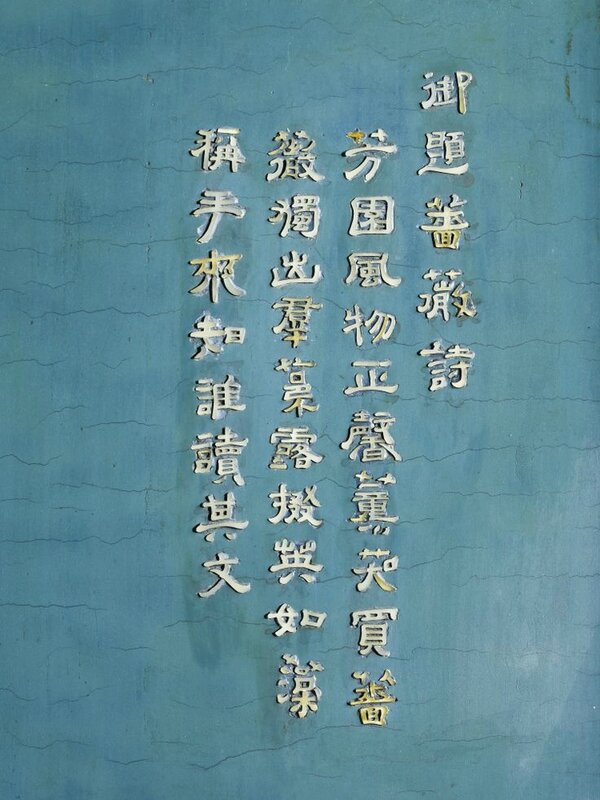 御題薔薇詩
芳園風物正馨薰笑買薔
薇獨出羣裛露掇英如藻
稱手來知誰讀其文